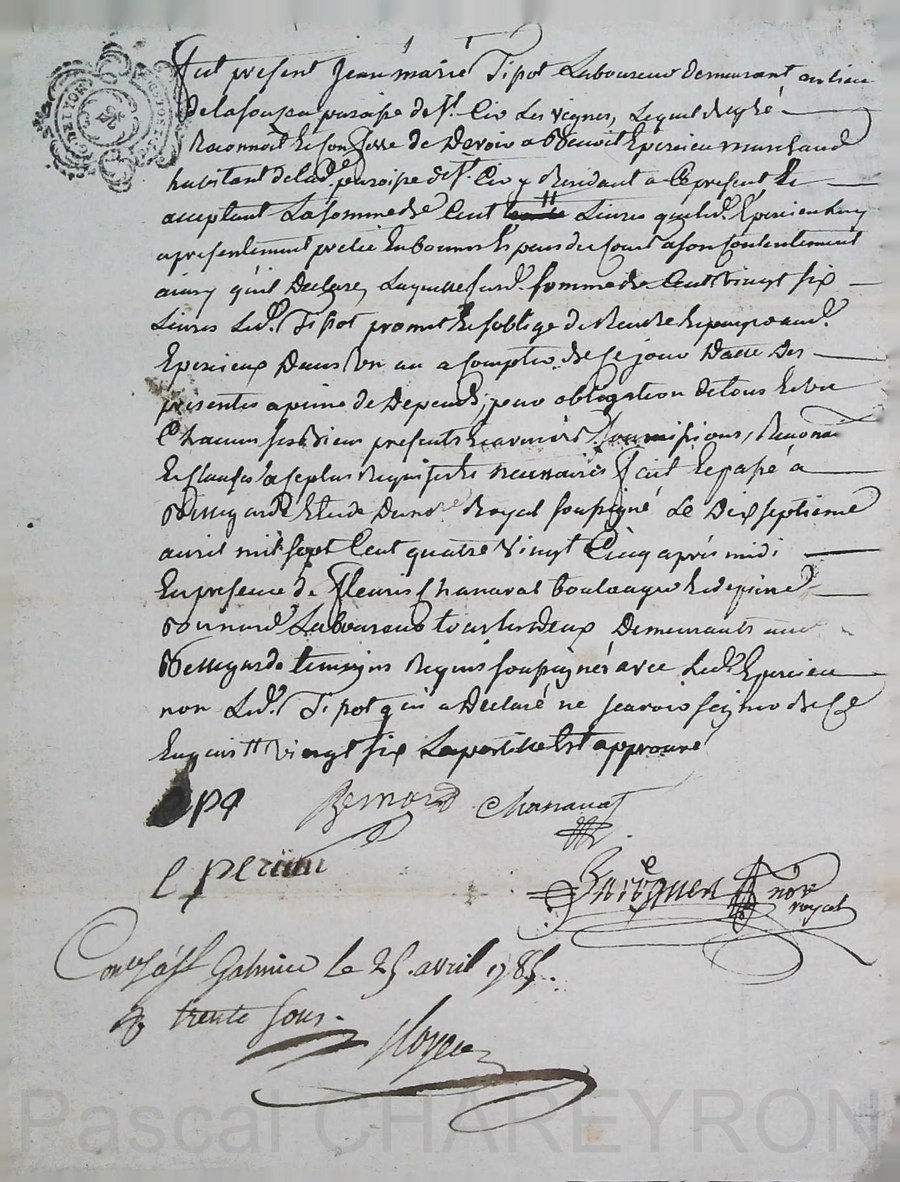 fut présent Jean marie Tipot Laboureur demeurant au lieu
de la paroisse de St. Cir Les vignes, Lequel de gré
Reconnoit Et Confesse de Devoir a Benoit Epercieu marchand
habitant de lad. paroisse de St. Cir y Residant a Ce présent Et
aceptant La somme de Cent Livres que led. Epercieu luy
a présentement pretée En bonnes Espèces du Cours a son Contentement
ainsy qu'il Déclare, Laquelle susd. somme de Cent vingt six
Livres Led. Tipot promet Et s'oblige de Rendre Et payer aud.
Epercieux Dans Un an a Compter de Ce jour Datte Des
presentes a peine de Depends, pour obligation de tous Et un
Chacuns ses Biens présents Et avenir soumissions, Renon.
Et Clauses a ce plus Requises Et nécessaires fait Et passé a
Bellegarde Etude Du nore Royal soussigné Le Dix septieme
avril mil sept Cent quatre vingt Cinq après midi
En présence de fleuris Chanavat boulanger Et
Bernard Laboureur tous les Deux Demeurants aud.
Bellegarde temoins Requis soussignés avec Led. Epercieu
non Led. Tipot qui a Déclaré ne sçavoir signer de Ce
Enquis tt vingt six La postille Est approuvé
epe Bernard Chanavat
eperciuu
nore
royal
Conlé à St Galmier Le 25 avril 1785.
R trente sous.
Pascal CHAREYRON